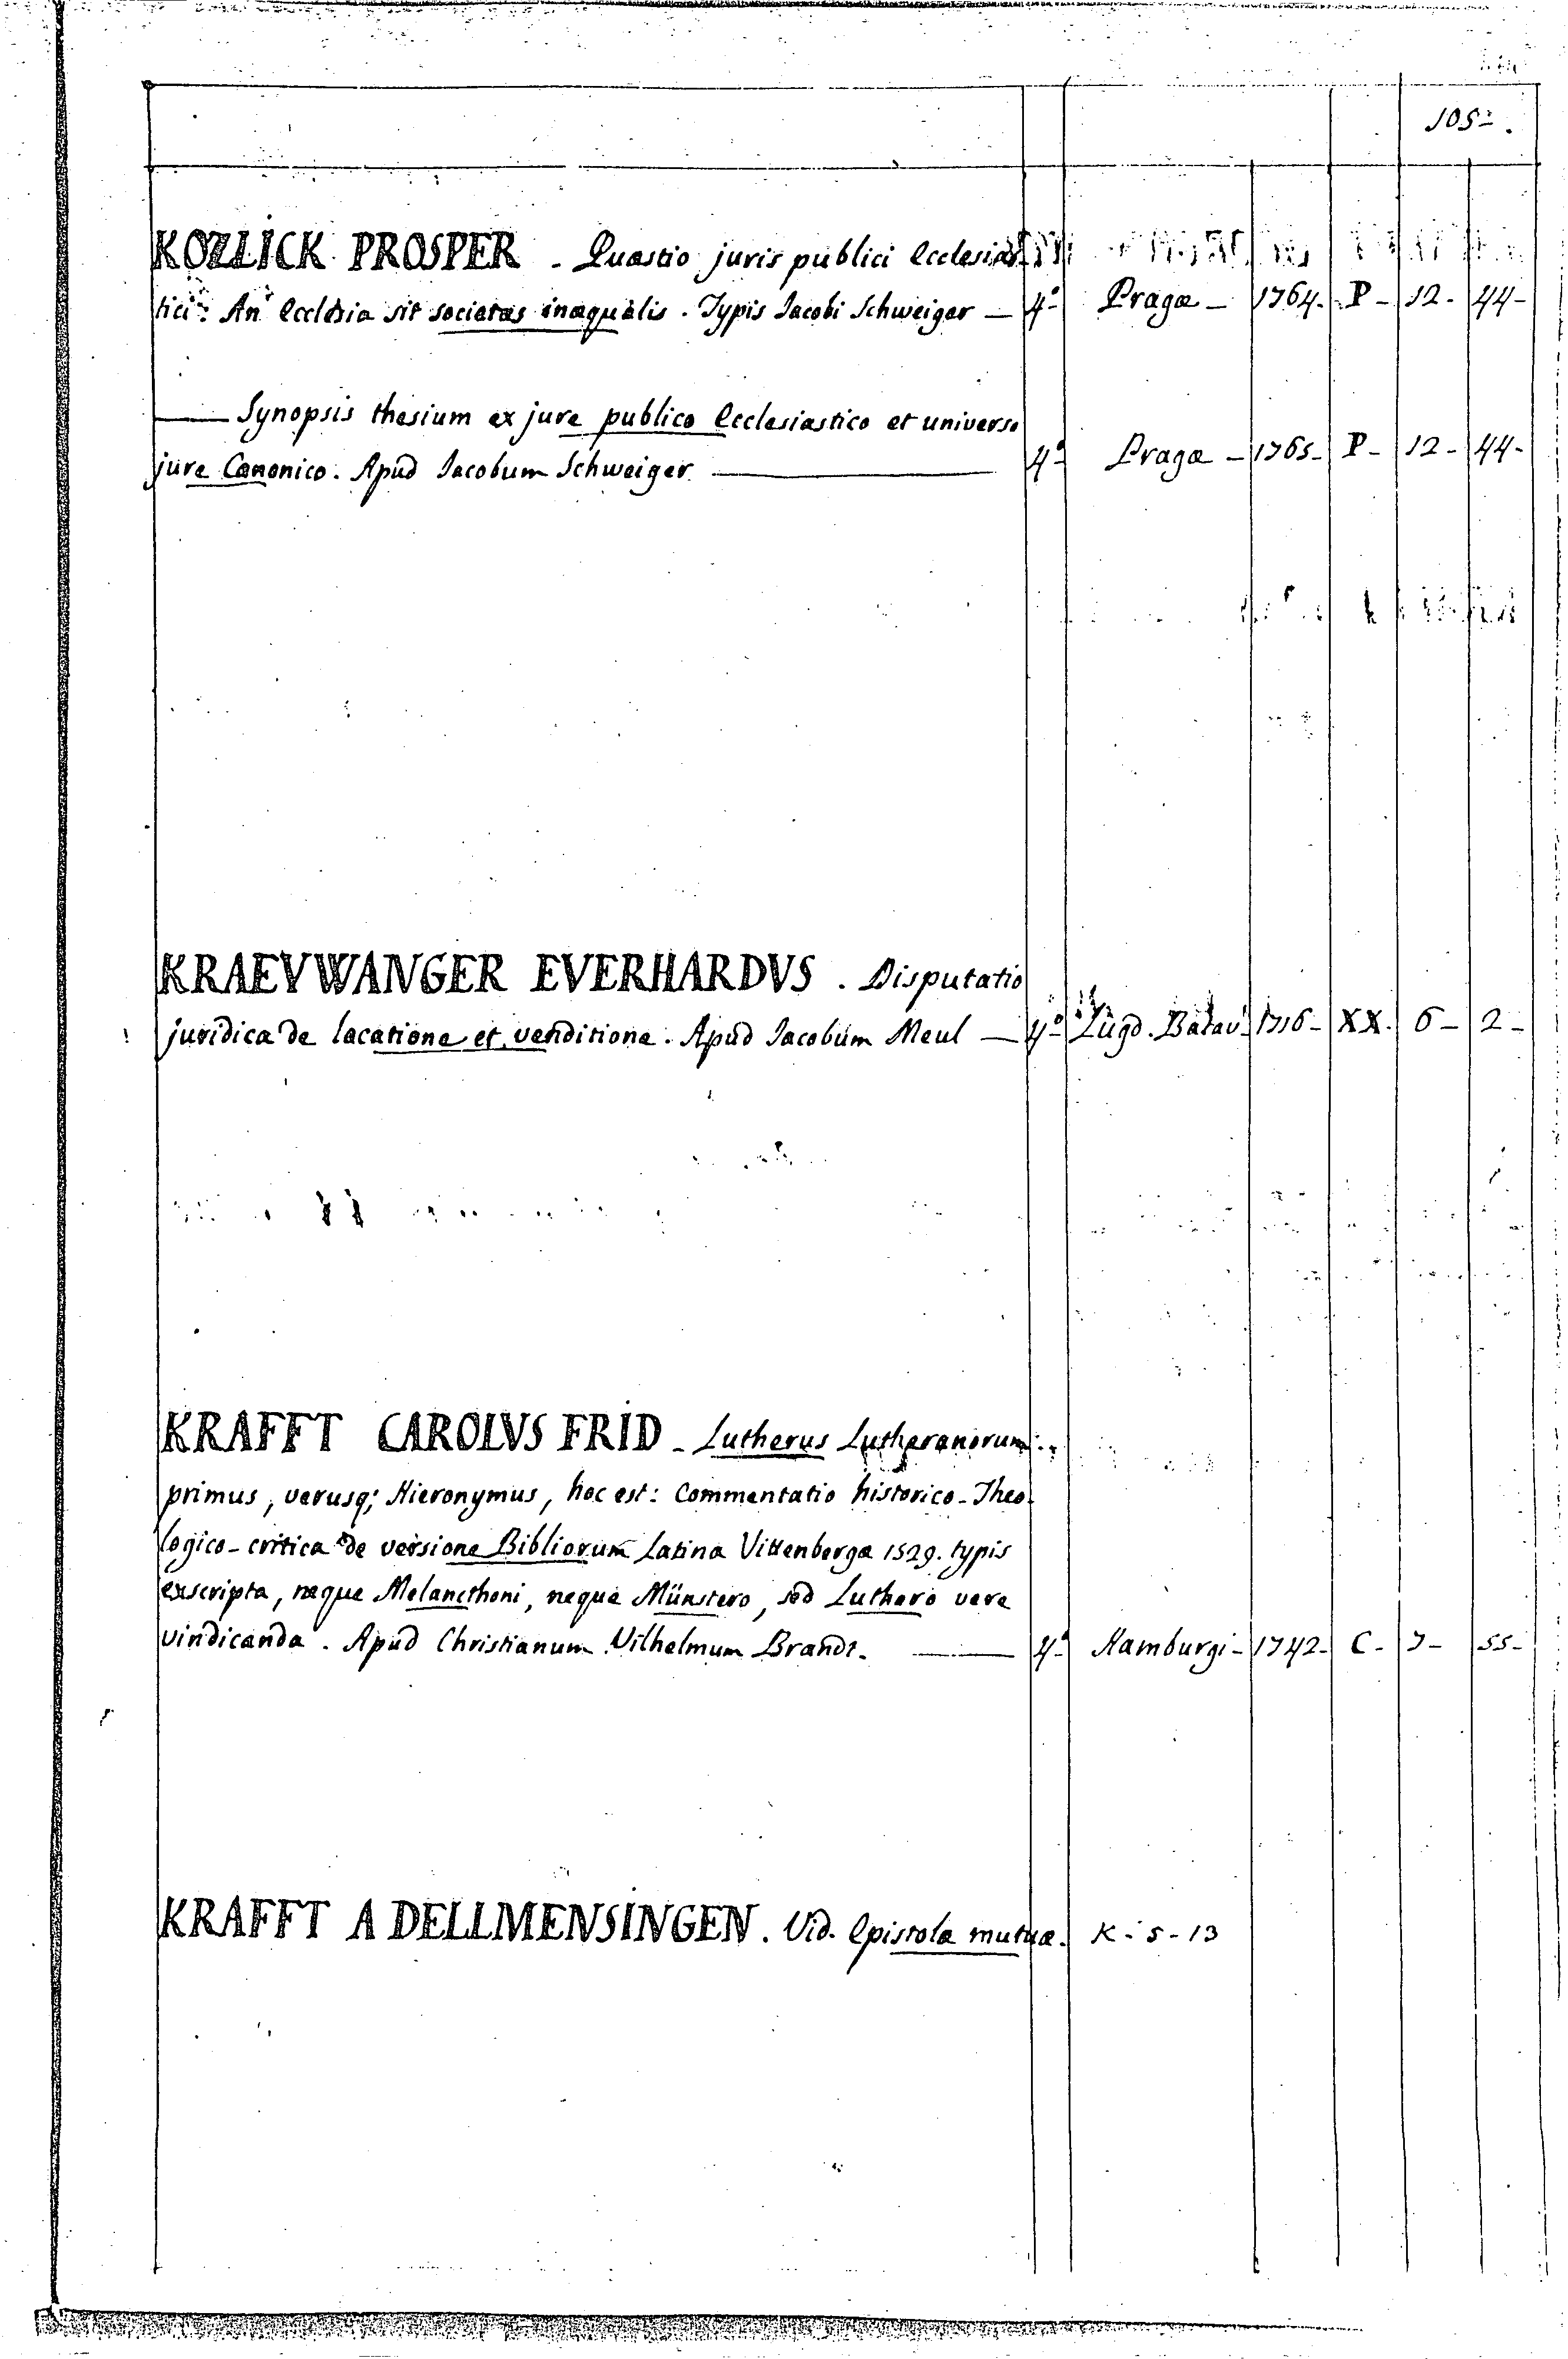 105.
KOZLICK PROSPER - Quæstio juris publici Ecclesias
tici: An Ecclesia sit societas inæqualis. Typis Jacobi Schweiger — 4º- Pragæ - 1764. P - 12- 44-
— Synopsis thesium ex jure publico Ecclesiastico et universo
jure Canonico. Apud Jacobum Schweiger — 4º- Pragæ - 1765- P - 12- 44-
KRAEVWANGER EVERHARDVS. Disputatio
juridica de locatione et venditione. Apud Jacobum Meul — 4º- Lugd. Batav. 1716- XX. 6- 2-
KRAFFT CAROLVS FRID - Lutherus Lutheranorum
primus, verusq; Hieronymus, hoc est: Commentatio historico-Theo
logico-critica de versione Bibliorum Latina Vittenbergæ 1529. typis
exscripta, neque Melancthoni, neque Münstero, sed Luthero vere
vindicanda. Apud Christianum Vilhelmum Brandt. — 4º- Hamburgi- 1742- C- 7- 55-
KRAFFT A DELLMENSINGEN. Vid. Epistolæ mutuæ. K-5-13